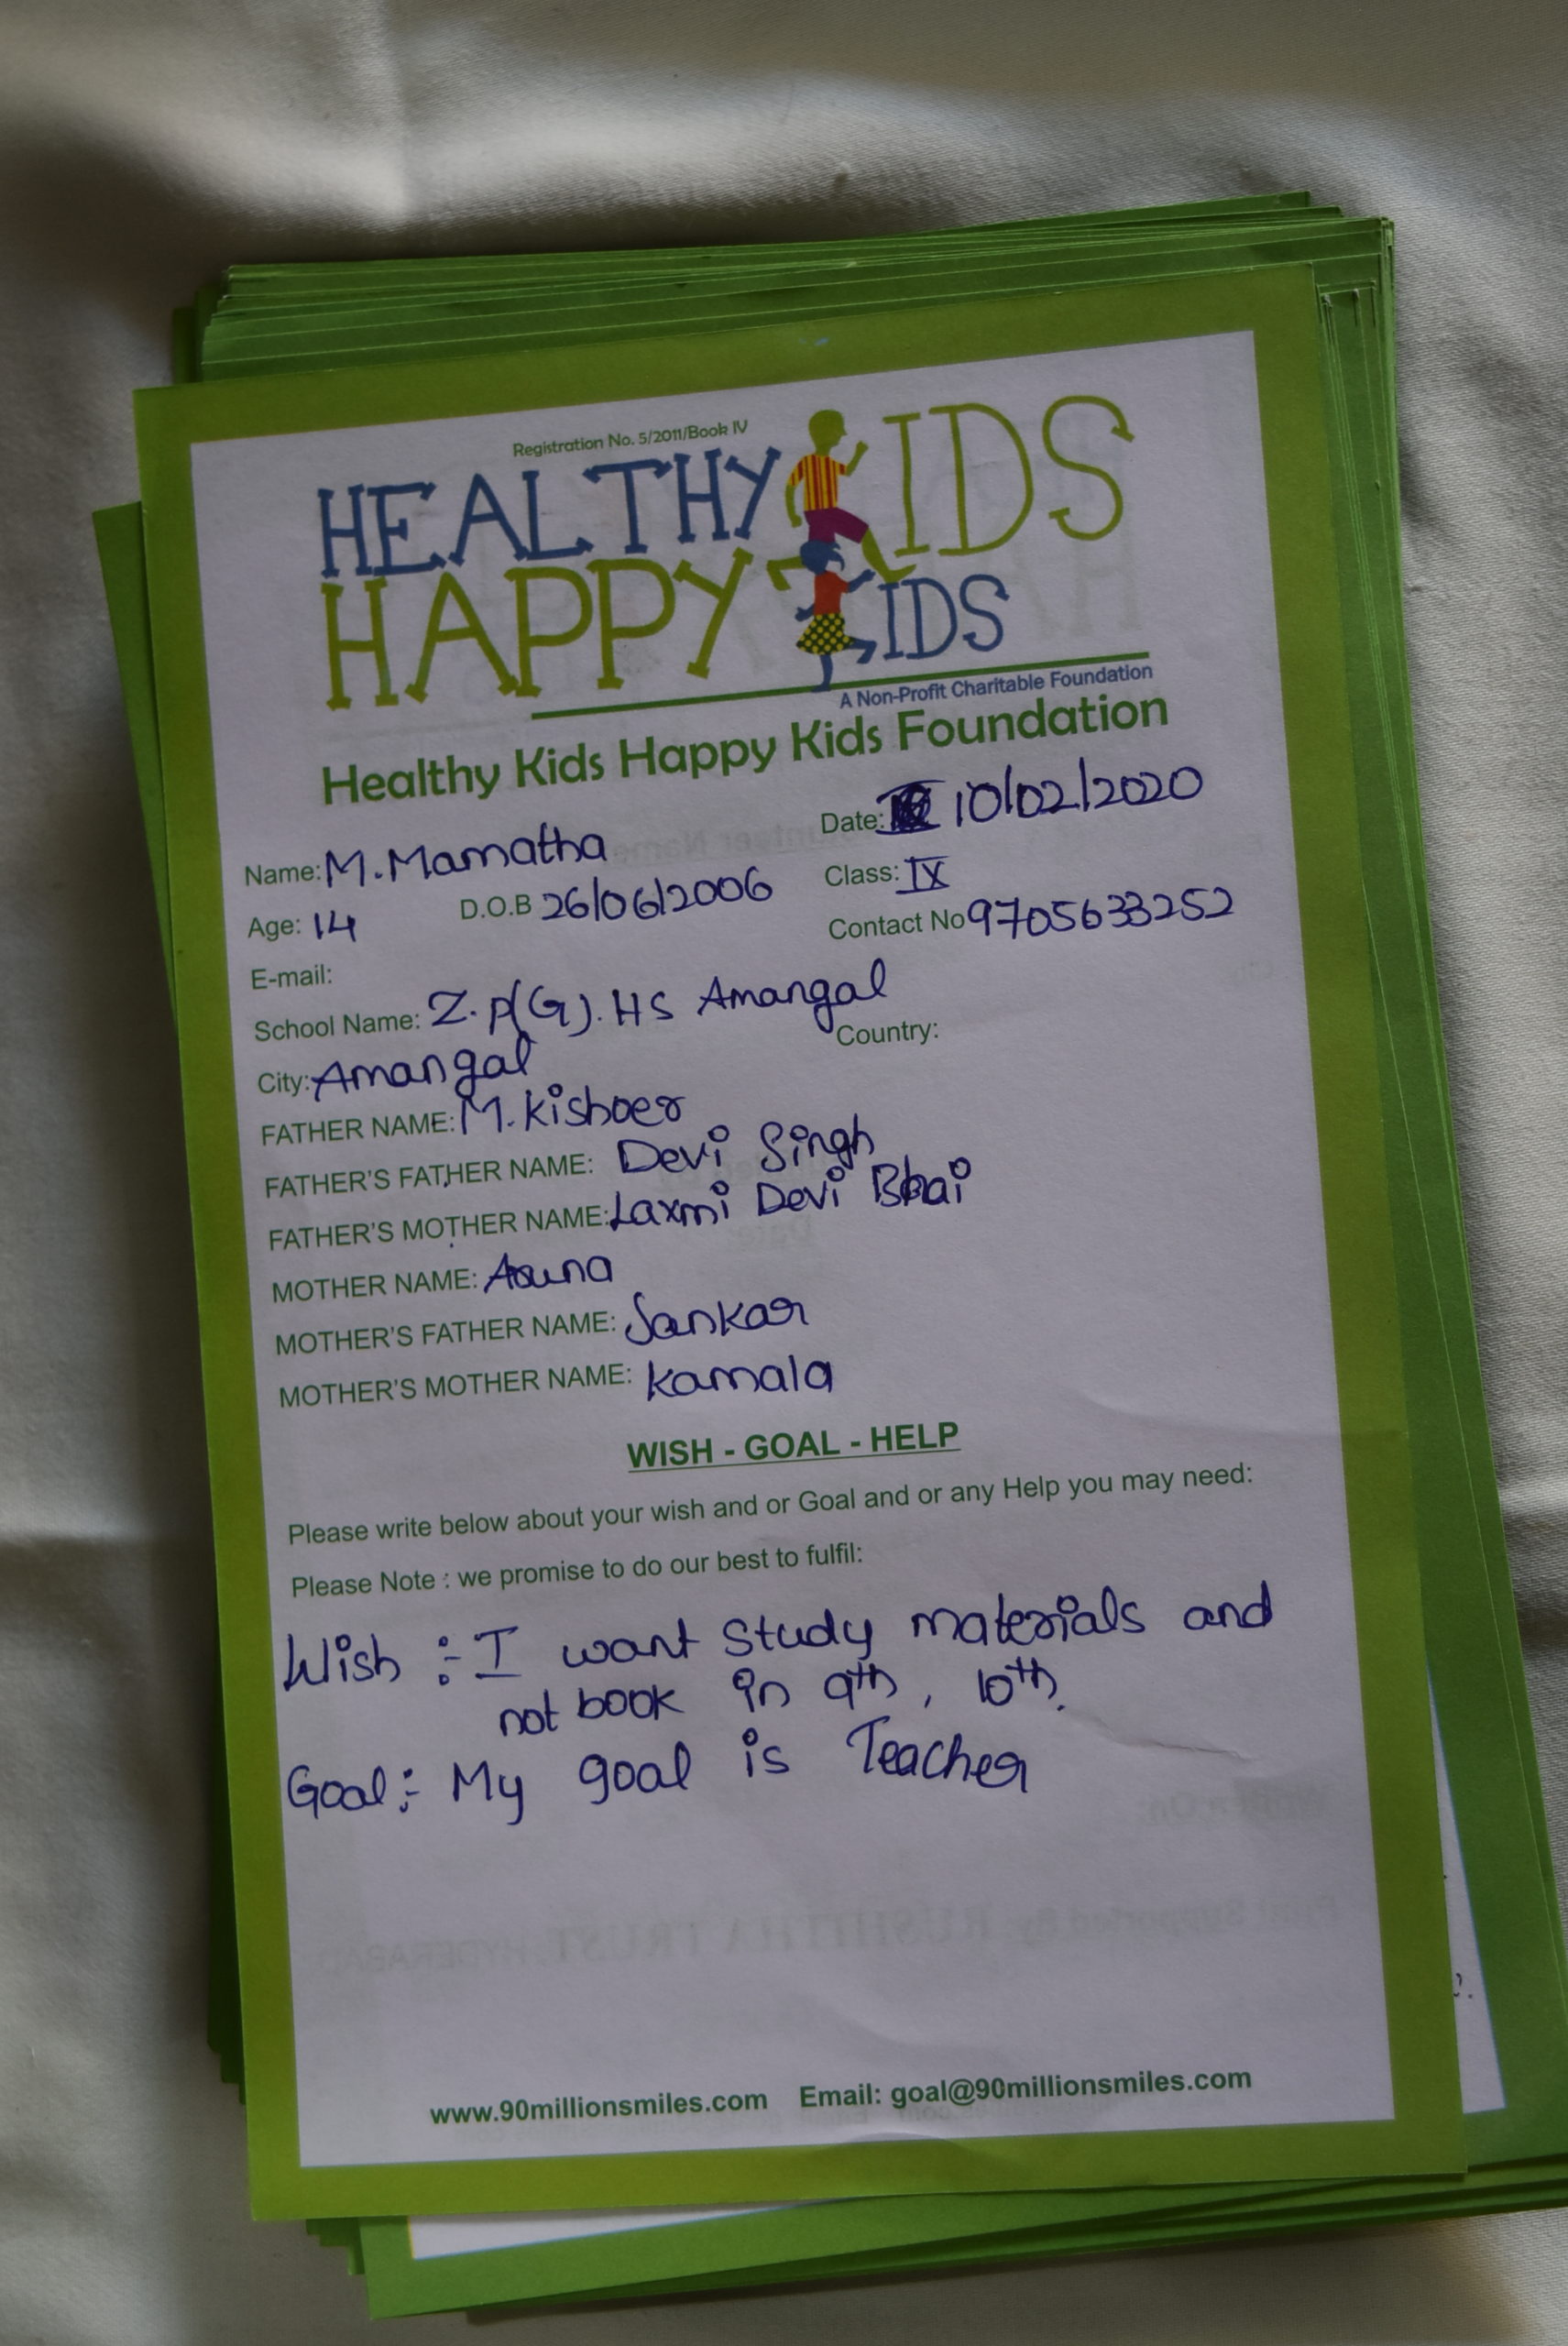 Registration No. 5/2011/Book IV
HEALTHY KIDS
HAPPY KIDS
A Non-Profit Charitable Foundation
Healthy Kids Happy Kids Foundation
Date: 10/02/2020
Name: M. Mamatha
Class: IX
Age: 14 D.O.B 26/06/2006
Contact No 9705633252
E-mail:
School Name: Z.P(G). HS Amangal
City: Amangal Country:
FATHER NAME: M. Kishoer
FATHER'S FATHER NAME: Devi Singh
FATHER'S MOTHER NAME: Laxmi Devi Bhai
MOTHER NAME: Aruna
MOTHER'S FATHER NAME: Sankar
MOTHER'S MOTHER NAME: Kamala
WISH - GOAL - HELP
Please write below about your wish and or Goal and or any Help you may need:
Please Note : we promise to do our best to fulfil:
Wish :- I want study materials and
not book in 9th, 10th.
Goal :- My goal is Teacher
www.90millionsmiles.com Email: goal@90millionsmiles.com